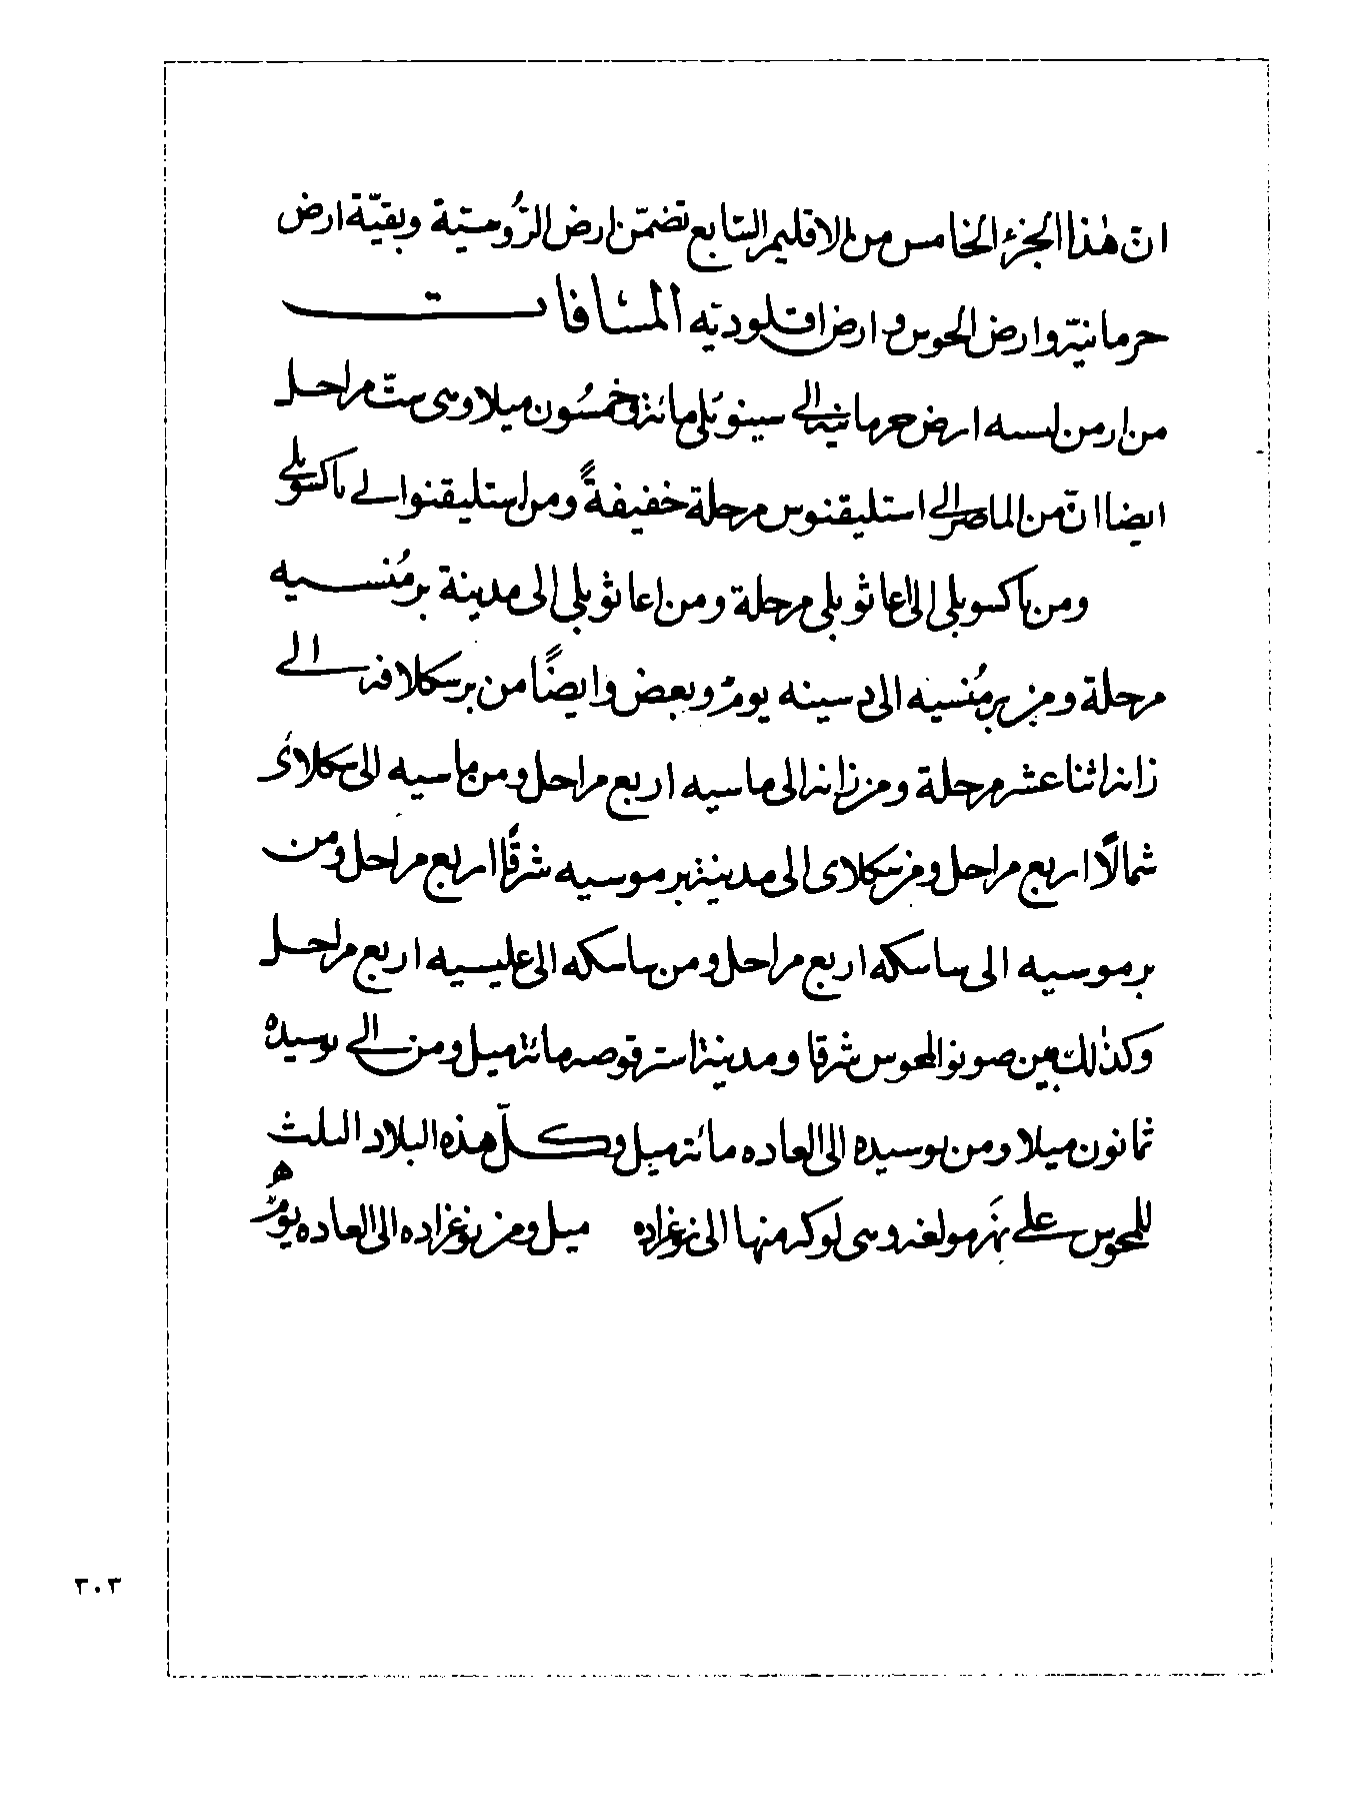 ان هذا الجزء الخامس من الاقليم السابع تضمن ارض الروسية وبقية ارض
حرمانية وارض المجوس و ارض اقلودية المسافات
من ارمن ارض جرمانية الى سينوبلى مائة وخمسون ميلا وهى ست مراحل
ايضا ان من الى استليقنوس مرحلة خفيفةً ومن استليقنوا الى باكسوبلى
ومن باكسوبلى الى اغاثوبلى مرحلة ومن اعاثوبلى الى مدينة برمُنسيه
مرحلة ومن برمُنسيه الى دسينه يومٌ وبعض وايضًا من برسكلافه الى
زانه اثنا عشر مرحلة ومن زانه الى ماسيه اربع مراحل ومن ماسيه الى سكلاى
شمالًا اربع مراحل ومن سكلاى الى مدينة برموسيه شرقًا اربع مراحل ومن
برموسيه الى ساسكه اربع مراحل ومن ساسكه الى عليسيه اربع مراحل
وكذلك بين صونو المجوس شرقا ومدينة استرقوصه مائة ميل ومن الى بوسيده
ثمانون ميلا ومن بوسيده الى العاده مائة ميل وكلّ هذه البلاد الثلث
للمجوس على نهَر مولغه وهى لوكه منها الى نوغراده ميل ومن نوغراده الى العاده يومٌ
هـ
٣٠٣